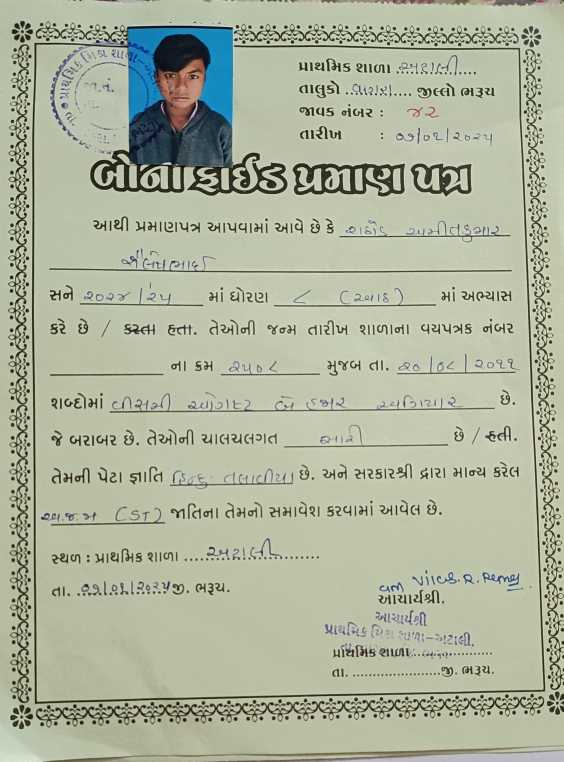 પ્રાથમિક શાળા અટાલી....
તાલુકો ..વાગરા.... જીલ્લો ભરૂચ
જાવક નંબર : ૪૨
તારીખ : ૦૧/૦૨/૨૦૨૫
બોનાફાઈડ પ્રમાણ પત્ર
આથી પ્રમાણપત્ર આપવામાં આવે છે કે રાઠોડ અમીતકુમાર
શૈલેષભાઈ
સને ૨૦૨૪/૨૫ માં ધોરણ ૮ (આઠ) માં અભ્યાસ
કરે છે / કરતા હતા. તેઓની જન્મ તારીખ શાળાના વયપત્રક નંબર
ના ક્રમ ૨૫૦૮ મુજબ તા. ૨૦/૦૮/૨૦૧૧
શબ્દોમાં વીસમી ઓગષ્ટ બે હજાર અગિયાર છે.
જે બરાબર છે. તેઓની ચાલચલગત સારી છે / હતી.
તેમની પેટા જ્ઞાતિ હિન્દુ તલાવીયા છે. અને સરકારશ્રી દ્રારા માન્ય કરેલ
અ.જ.જા (ST) જાતિના તેમનો સમાવેશ કરવામાં આવેલ છે.
સ્થળ : પ્રાથમિક શાળા .....અટાલી.......
તા. ૦૧/૦૨/૨૦૨૫ જી. ભરૂચ.
આચાર્યશ્રી.
આચાર્યશ્રી
પ્રાથમિક મિશ્ર શાળા-અટાલી.
પ્રાથમિક શાળા
તા. ....................જી. ભરૂચ.